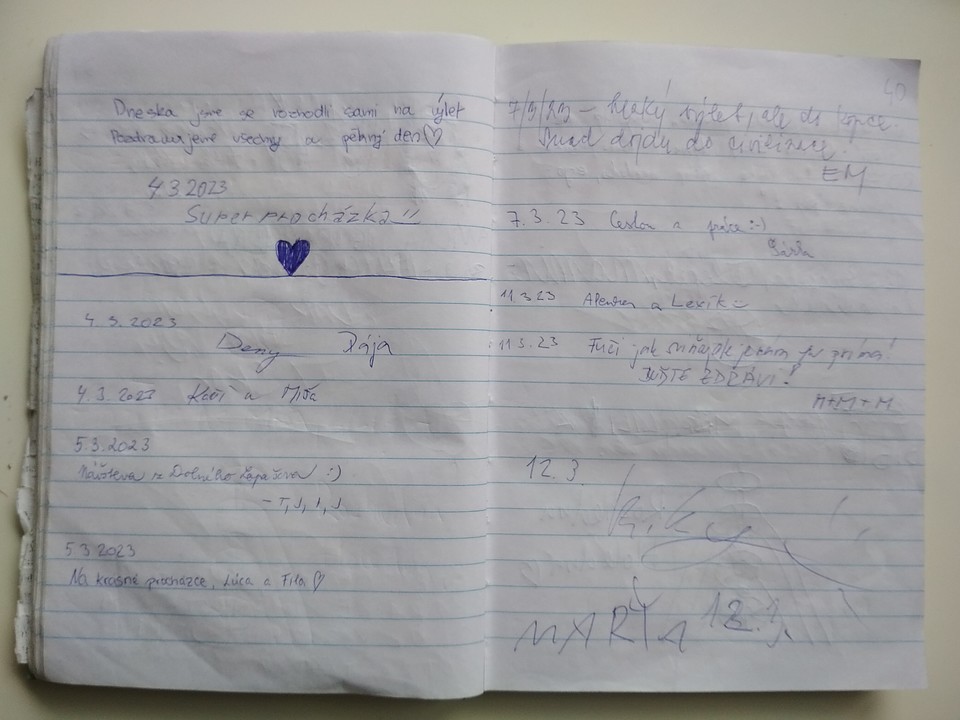 Dneska jsme se rozhodli sami na výlet
Pozdravujeme všechny a pěkný den
4.3.2023
Super procházka!!
4.3.2023
Deny Pája
4.3.2023 Katí a Míša
5.3.2023
Návšteva z Dolního :)
- T, J, J, J
5.3.2023
Na krásné procházce, Lúca a Fila
40
7/3/23 - výlet, ale do kopce.
Snad dojdu do
EM
7.3.23 Cestou z práce :-)
Šárka
11.3.23 a Lexík
11.3.23 Fučí jak
BUĎTE ZDRÁVI!
M+M+M
12.3.
MARŤA 12.3.